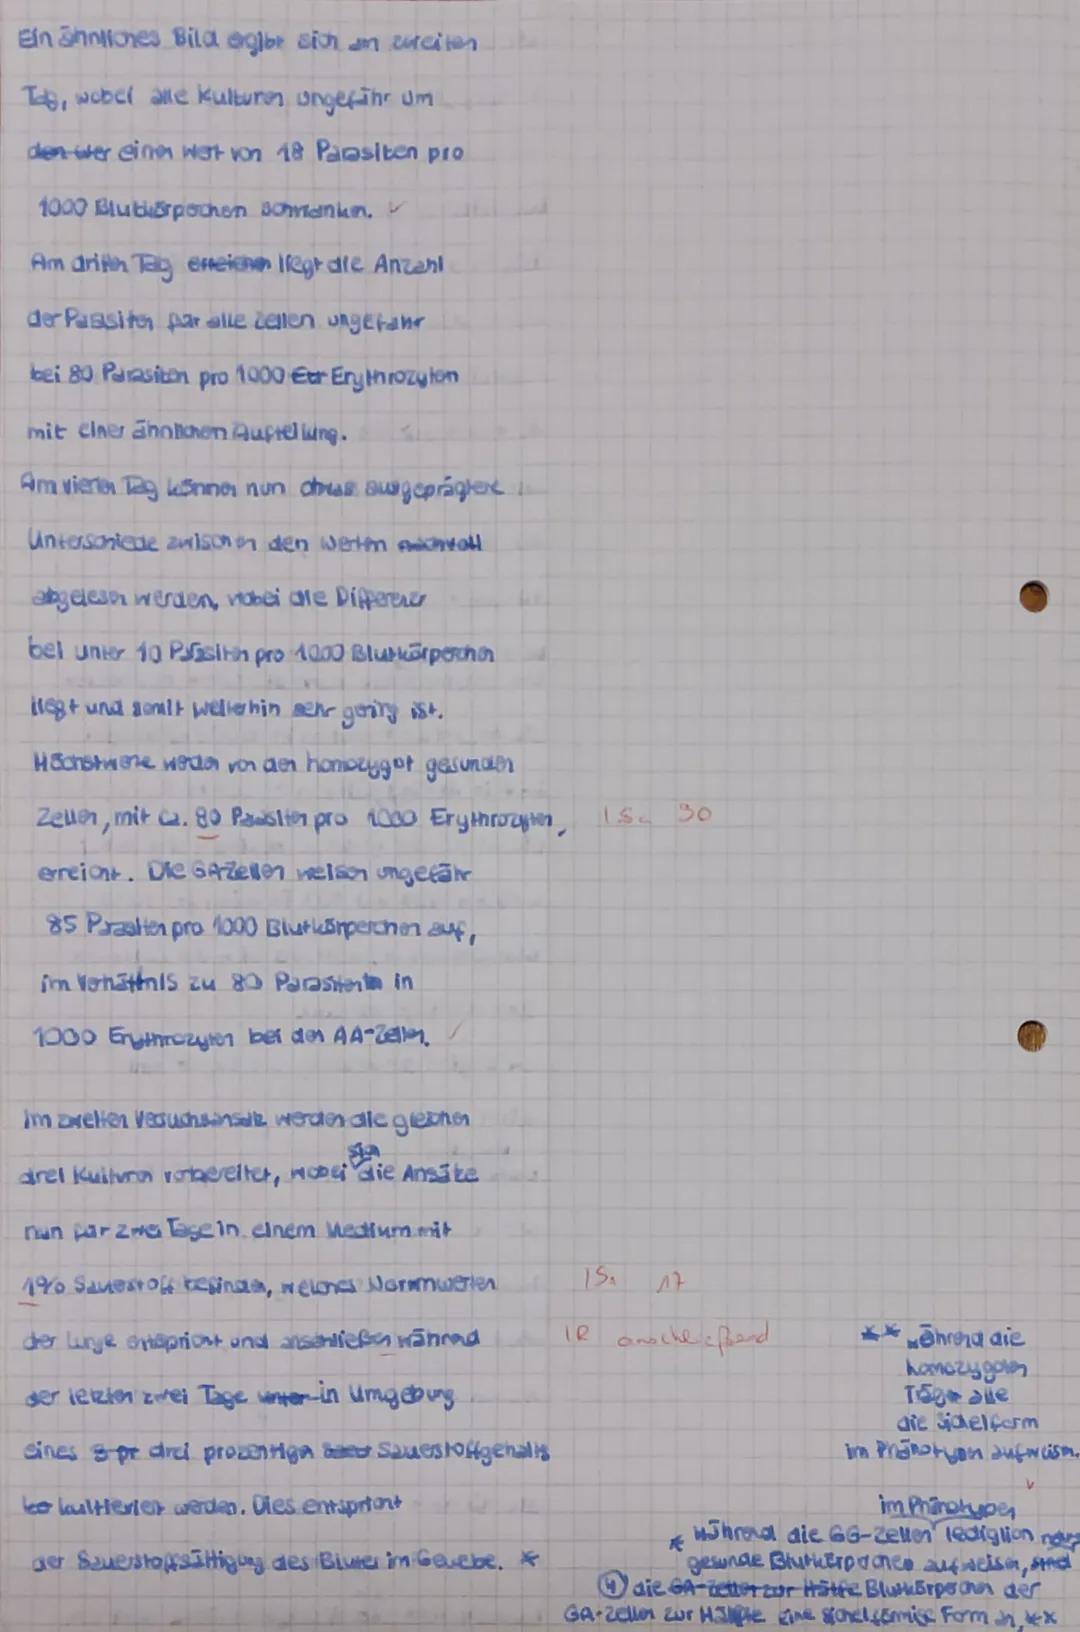 Ein ähnliches Bild ergibt sich am zweiten
Tag, wobei alle Kulturen ungefähr um
den wer einen Wert von 18 Parasiten pro
1000 Blutkörperchen schwanken. ✓
Am dritten Tag erreichen liegt die Anzahl
der Parasiten für alle Zellen ungefähr
bei 80 Parasiten pro 1000 Erythrozyten
mit einer ähnlichen Aufteilung.
Am vierten Tag können nun etwas ausgeprägtere
Unterschiede zwischen den Werten
abgelesen werden, wobei die Differenz
bei unter 10 Parasiten pro 1000 Blutkörperchen
liegt und somit weiterhin sehr gering ist.
Höchstwerte werden von den homozygot gesunden
Zellen, mit ca. 80 Parasiten pro 1000 Erythrozyten, IS. 90
erreicht. Die GA-Zellen weisen ungefähr
85 Parasiten pro 1000 Blutkörperchen auf,
im Verhältnis zu 80 Parasiten in
1000 Erythrozyten bei den AA-Zellen. ✓
Im zweiten Versuchsansatz werden die gleichen
sich
drei Kulturen vorbereitet, wobei die Ansätze
nun für zwei Tage in einem Medium mit
1% Sauerstoff befinden, welches Normwerten IS. 17
der Lunge entspricht und anschließen während IR anschließend
der letzten zwei Tage unter in Umgebung
eines 3 pr drei prozentigen Sauerstoffgehalts
kultiviert werden. Dies entspricht
der Sauerstoffsättigung des Blutes im Gewebe. *
** während die
homozygoten
Träger alle
die Sichelform
im Phänotypen aufweisen.
✓
im Phänotypen
* Während die GG-Zellen lediglich
gesunde Blutkörperchen aufweisen, sind
④ die GA-Zellen zur Hälfte Blutkörperchen der
GA-Zellen zur Hälfte eine sichelförmige Form an, **